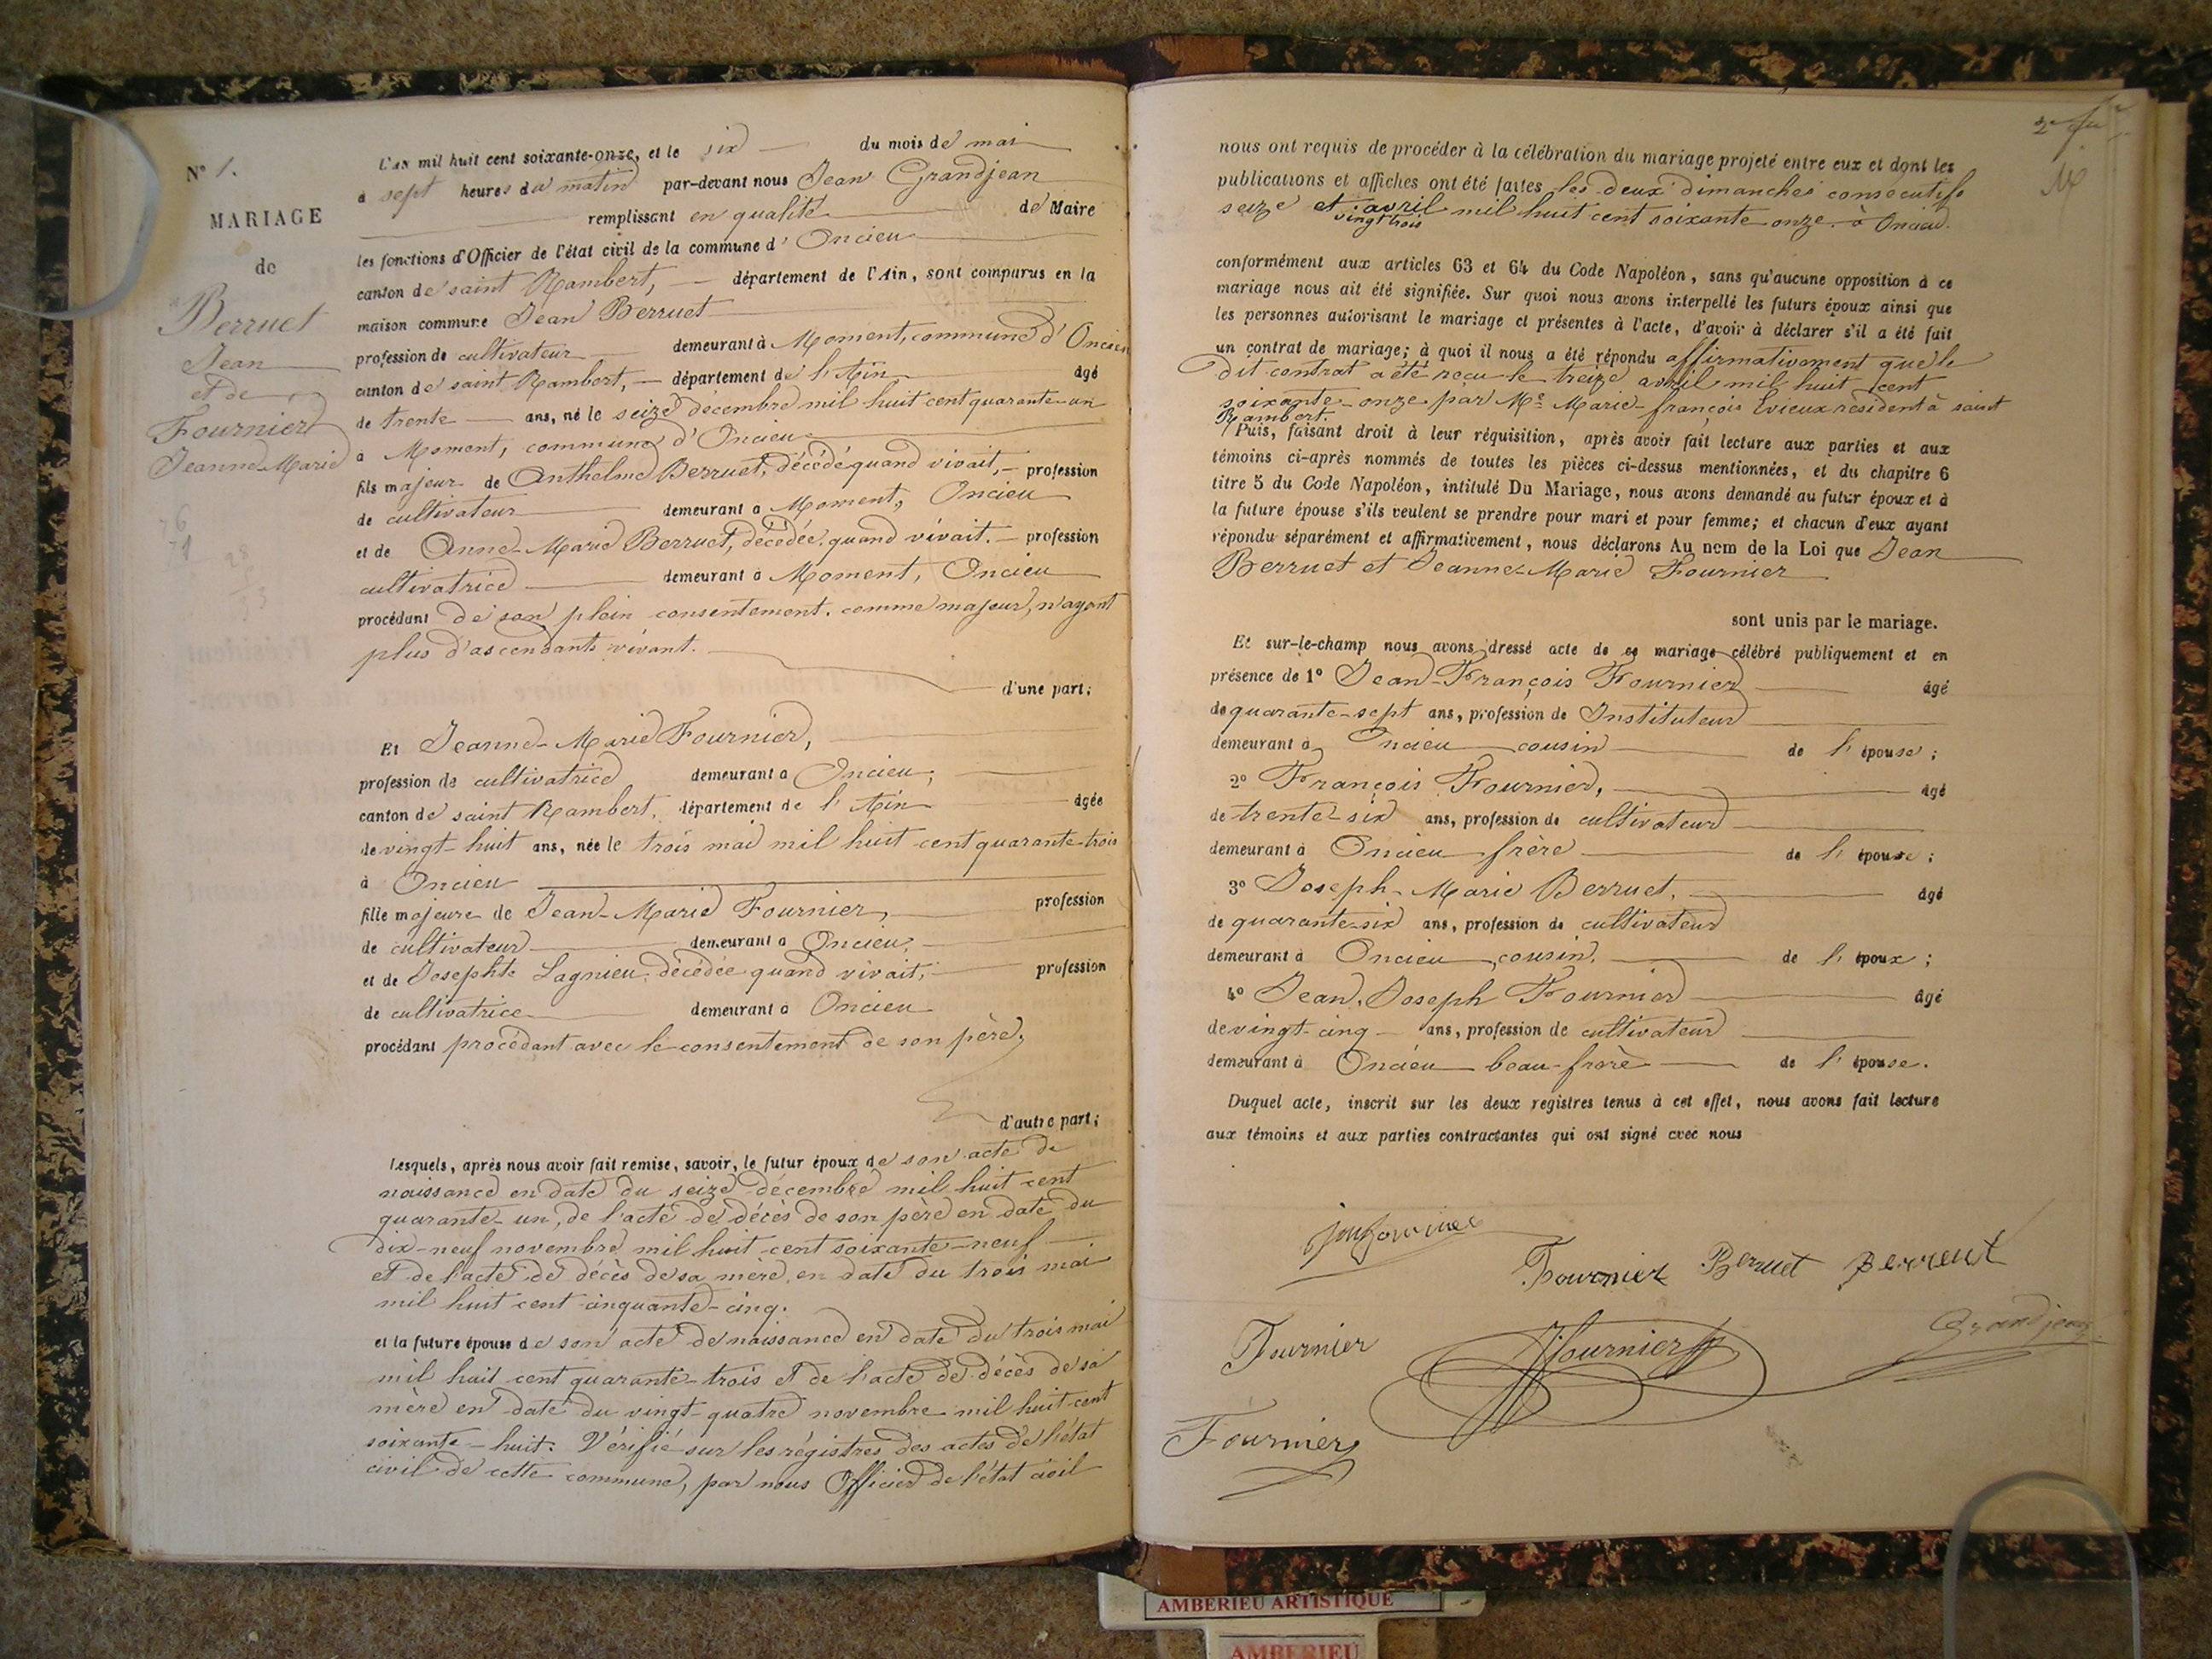 N° 1.
MARIAGE
de
Berruet
Jean
et de
Fournier
Jeanne-Marie
L'an mil huit cent soixante-onze, et le six du mois de mai
à sept heures du matin par-devant nous Jean Grandjean
remplissant en qualité de Maire
les fonctions d'Officier de l'état civil de la commune d'Oncieu
canton de saint Rambert, département de l'Ain, sont comparus en la
maison commune Jean Berruet
profession de cultivateur demeurant à Moment, commune d'Oncieu
canton de saint Rambert, département de l'Ain âgé
de trente ans, né le seize décembre mil huit cent quarante-un
à Moment, commune d'Oncieu
fils majeur de Anthelme Berruet, décédé quand vivait, profession
de cultivateur demeurant à Moment, Oncieu
et de Anne-Marie Berruet, décédée quand vivait. profession
cultivatrice demeurant à Moment, Oncieu
procédant de son plein consentement. comme majeur, n'ayant
plus d'ascendants vivant.
d'une part;
Et Jeanne-Marie Fournier,
profession de cultivatrice demeurant à Oncieu,
canton de saint Rambert, département de l'Ain âgée
de vingt-huit ans, née le trois mai mil huit cent quarante-trois
à Oncieu
fille majeure de Jean-Marie Fournier, profession
de cultivateur demeurant à Oncieu,
et de Josephte Lagnieu, décédée quand vivait, profession
de cultivatrice demeurant à Oncieu
procédant procédant avec le consentement de son père,
d'autre part;
Lesquels, après nous avoir fait remise, savoir, le futur époux de son acte de
naissance en date du seize décembre mil huit cent
quarante-un, de l'acte de décès de son père en date du
dix-neuf novembre mil huit cent soixante-neuf
et de l'acte de décès de sa mère en date du trois mai
mil huit cent cinquante-cinq.
et la future épouse de son acte de naissance en date du trois mai
mil huit cent quarante-trois et de l'acte de décès de sa
mère en date du vingt-quatre novembre mil huit cent
soixante-huit. Vérifié sur les régistres des actes de l'état
civil de cette commune, par nous Officier de l'état civil
nous ont requis de procéder à la célébration du mariage projeté entre eux et dont les
publications et affiches ont été faites les deux dimanches consécutifs
seize et vingt trois avril mil huit cent soixante onze à Oncieu.
conformément aux articles 63 et 64 du Code Napoléon, sans qu'aucune opposition à ce
mariage nous ait été signifiée. Sur quoi nous avons interpellé les futurs époux ainsi que
les personnes autorisant le mariage et présentes à l'acte, d'avoir à déclarer s'il a été fait
un contrat de mariage; à quoi il nous a été répondu affirmativement que le
dit contrat a été reçu le treize avril mil huit cent
soixante-onze par Me Marie-françois Evieux résident à saint
Rambert.
Puis, faisant droit à leur réquisition, après avoir fait lecture aux parties et aux
témoins ci-après nommés de toutes les pièces ci-dessus mentionnées, et du chapitre 6
titre 5 du Code Napoléon, intitulé Du Mariage, nous avons demandé au futur époux et à
la future épouse s'ils veulent se prendre pour mari et pour femme; et chacun d'eux ayant
répondu séparément et affirmativement, nous déclarons Au nom de la Loi que Jean
Berruet et Jeanne-Marie Fournier
sont unis par le mariage.
Et sur-le-champ nous avons dressé acte de ce mariage célébré publiquement et en
présence de 1° Jean-François Fournier âgé
de quarante-sept ans, profession de Instituteur
demeurant à Oncieu cousin de l'épouse;
2° François Fournier, âgé
de trente-six ans, profession de cultivateur
demeurant à Oncieu frère de l'épouse;
3° Joseph-Marie Berruet, âgé
de quarante-six ans, profession de cultivateur
demeurant à Oncieu, cousin, de l'époux;
4° Jean-Joseph Fournier âgé
de vingt-cinq ans, profession de cultivateur
demeurant à Oncieu beau-frère de l'épouse.
Duquel acte, inscrit sur les deux registres tenus à cet effet, nous avons fait lecture
aux témoins et aux parties contractantes qui ont signé avec nous
Fournier Berruet Berruet
Fournier Fournier Grandjean
Fournier
AMBERIEU ARTISTIQUE
AMBERIEU